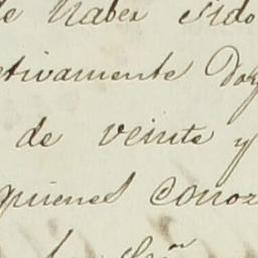 de haber sido
ctivamente Doy
de veinte y
quienes conoz